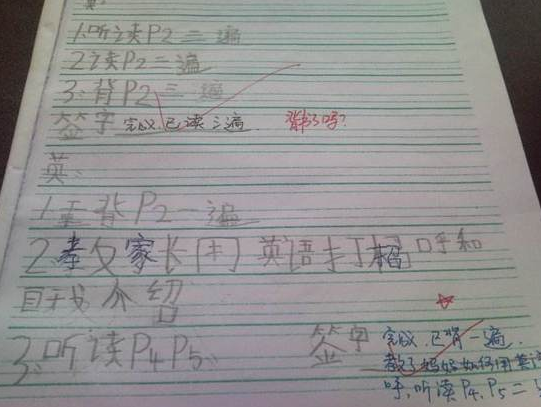 英:
1.听读P2三遍
2读P2二遍
3.背P2三遍
签字 完成.已读三遍. 背书了吗?
英:
1重背P2一遍
2孝文家长用英语打招呼和
自我介绍
3.听读P4P5. 签字 完成.已背一遍.
教了妈妈如何用英语
呼,听读P4.P5二